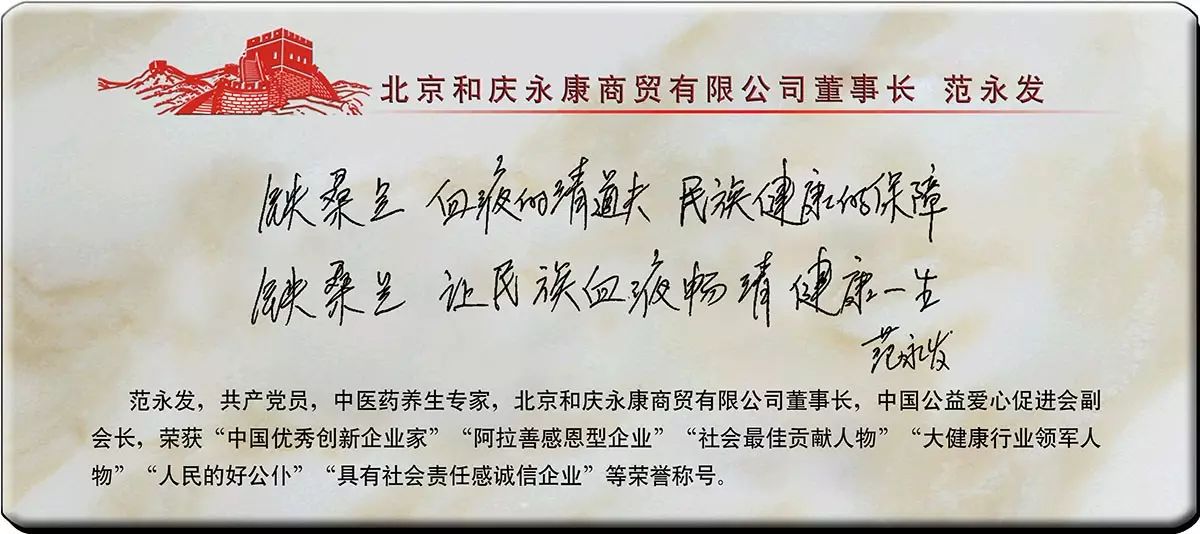 北京和庆永康商贸有限公司董事长 范永发
铁桑兰 血液的清道夫 民族健康的保障
铁桑兰 让民族血液畅清 健康一生
范永发
范永发，共产党员，中医药养生专家，北京和庆永康商贸有限公司董事长，中国公益爱心促进会副
会长，荣获“中国优秀创新企业家”“阿拉善感恩型企业”“社会最佳贡献人物”“大健康行业领军人
物”“人民的好公仆”“具有社会责任感诚信企业”等荣誉称号。